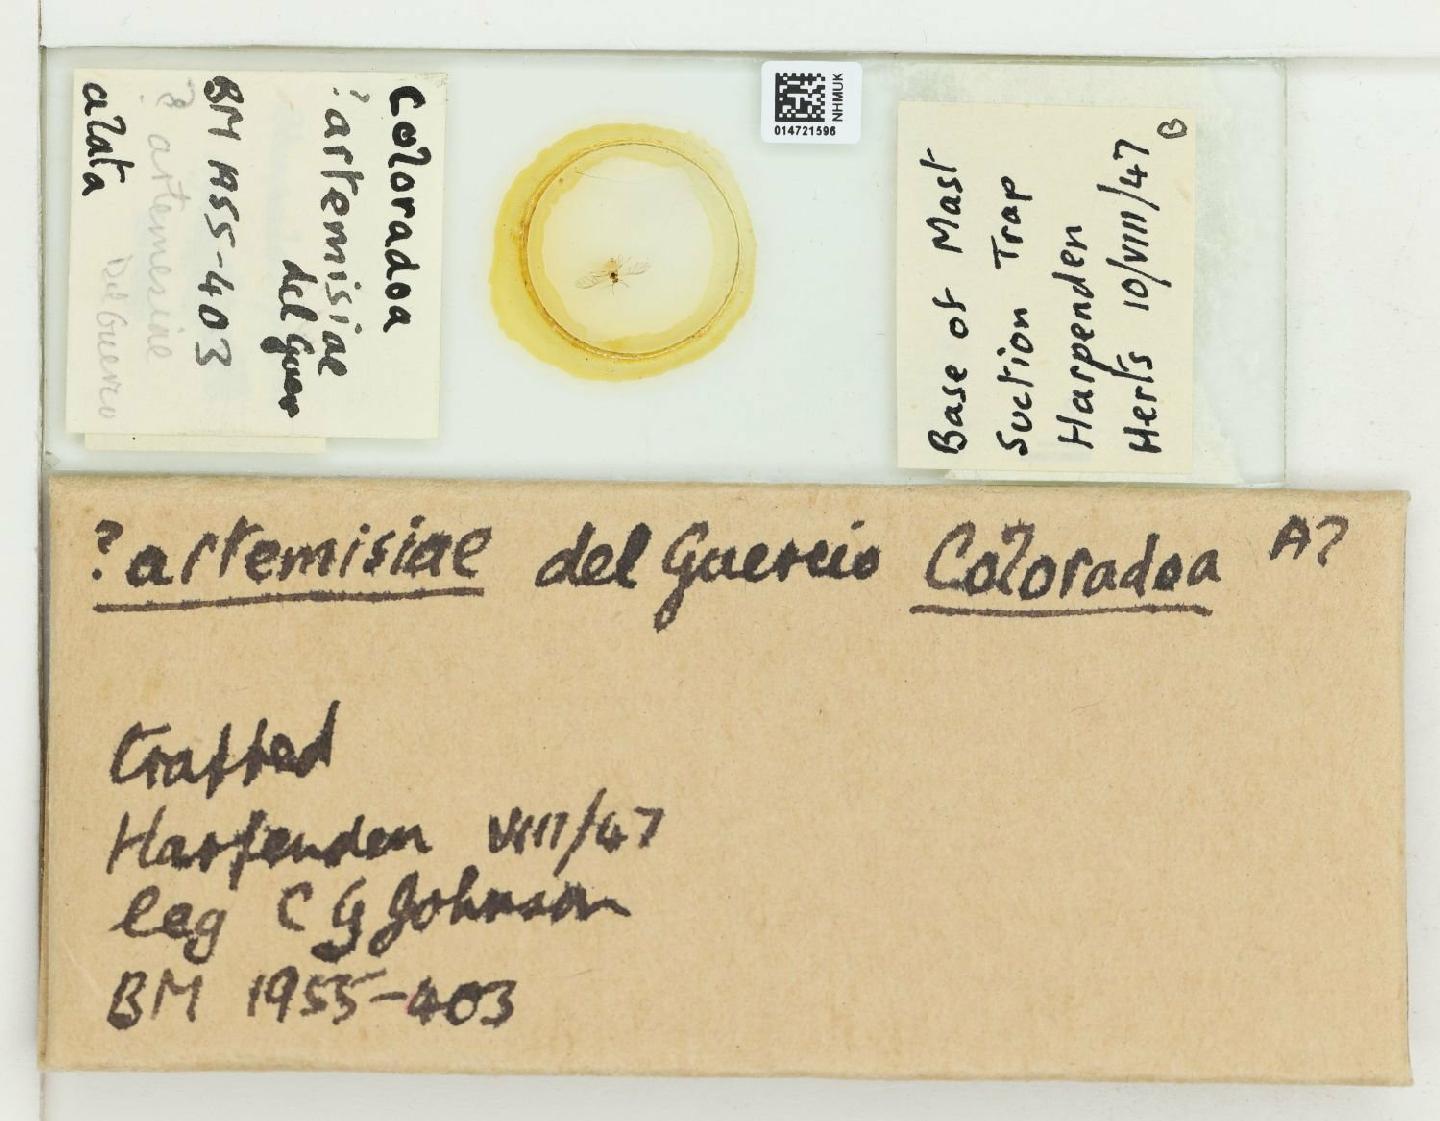 Coloradoa
?artemisiae
del Guer
BM 1955-403
? artemesiae
Del Guerco
alata
NHMUK
014721596
B
Base of Mast
Suction Trap
Harpenden
Herts 10/VIII/47
?artemisiae del Guercio Coloradoa A?
trapped
Harpenden VIII/47
leg C G Johnson
BM 1955-403